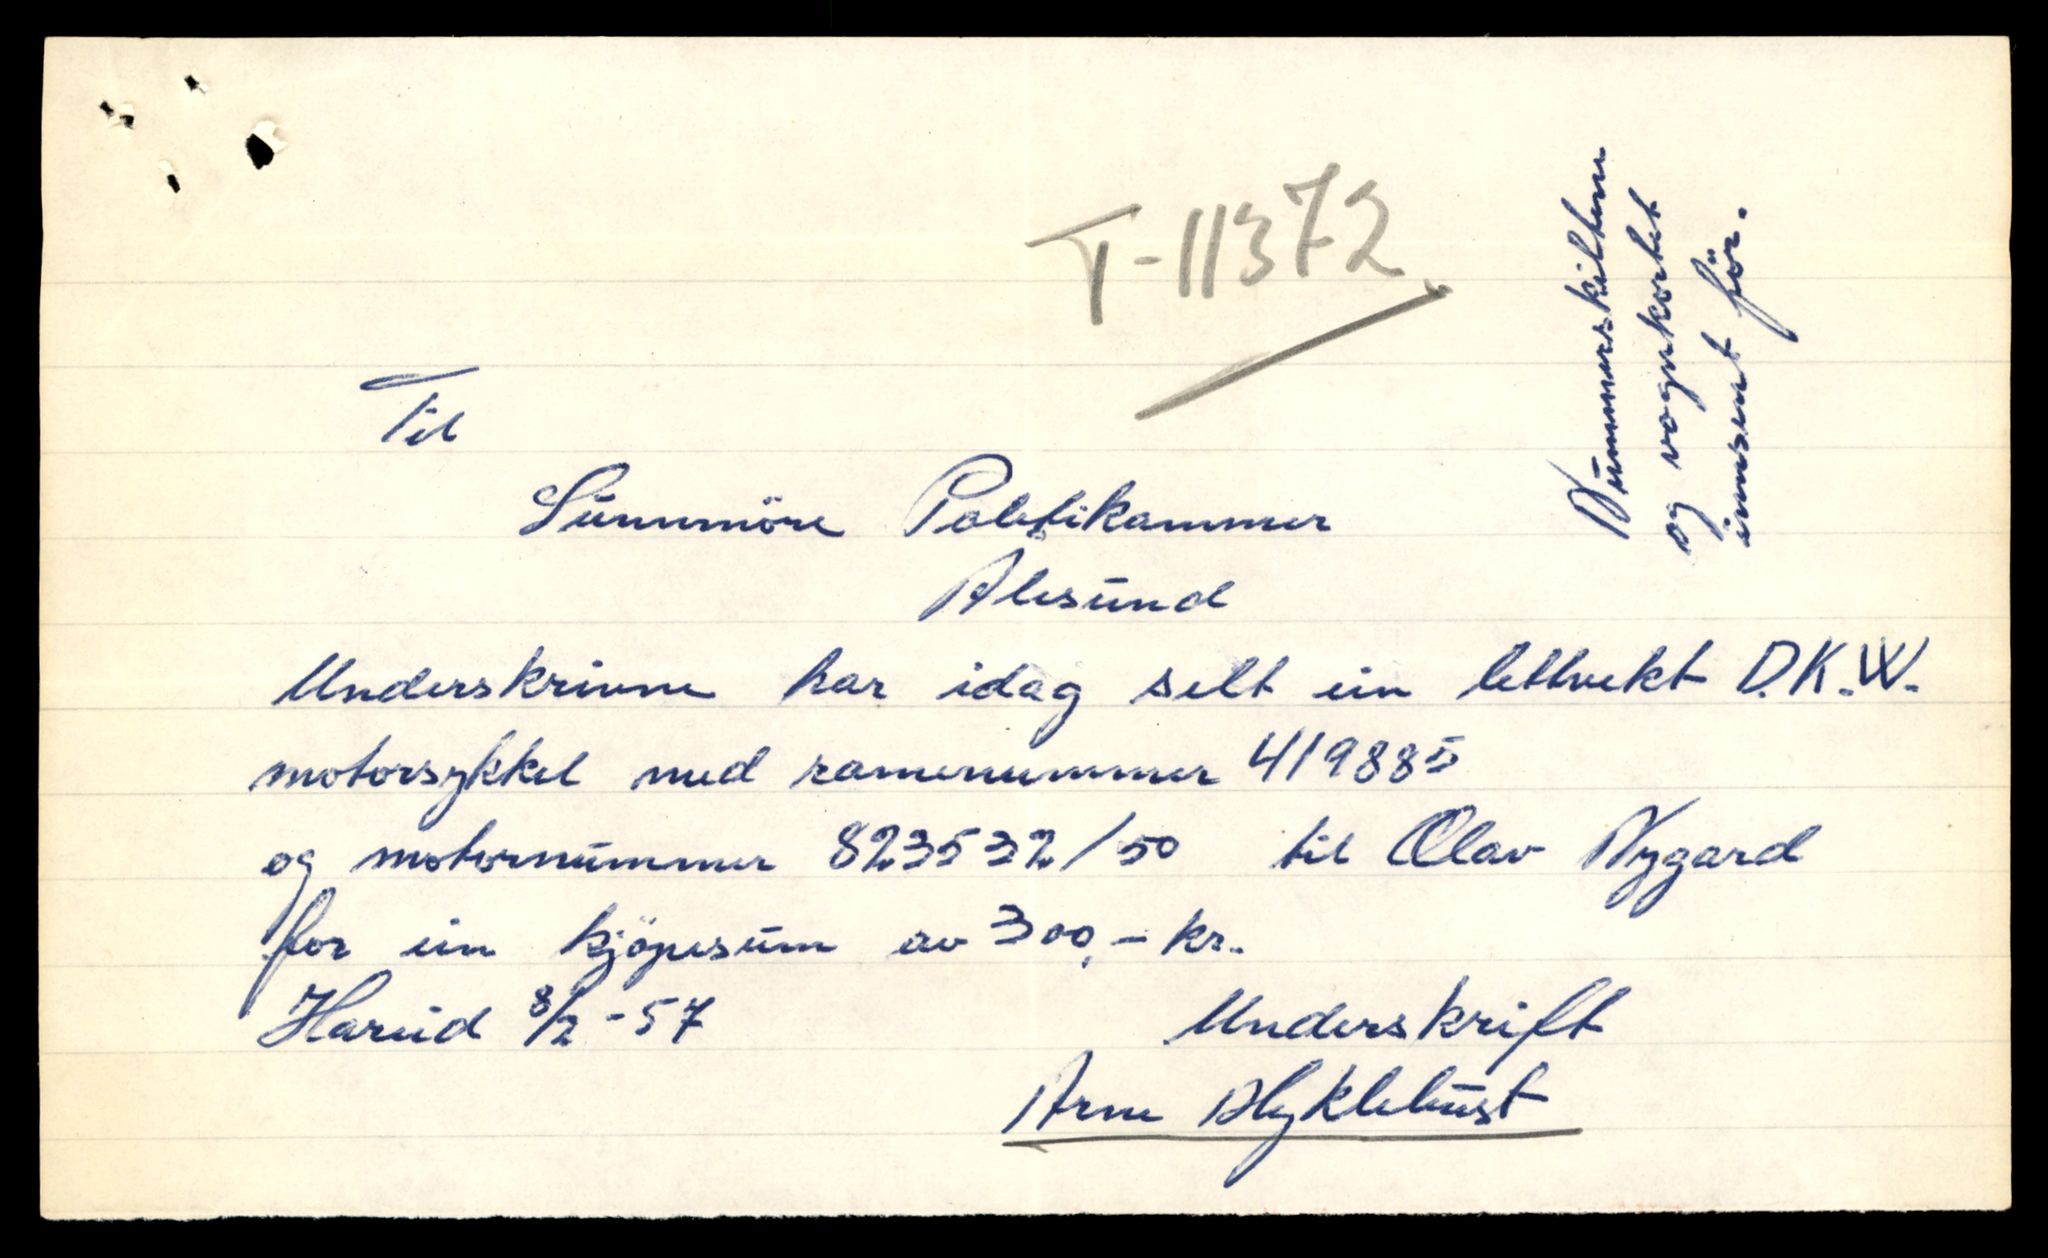 T-11372
Nummerskiltene
og vognkortet
innsent för.
Til
Sunnmöre Politikammer
Alesund
Underskrivne har idag selt ein lettvekt D.K.W.
motorsykkel med ramenummer 419885
og motornummer 823532/50 til Olav Nygard
for ein kjöpesum av 300,- kr.
Hareid 8/2-57
Underskrift
Arne Myklebust